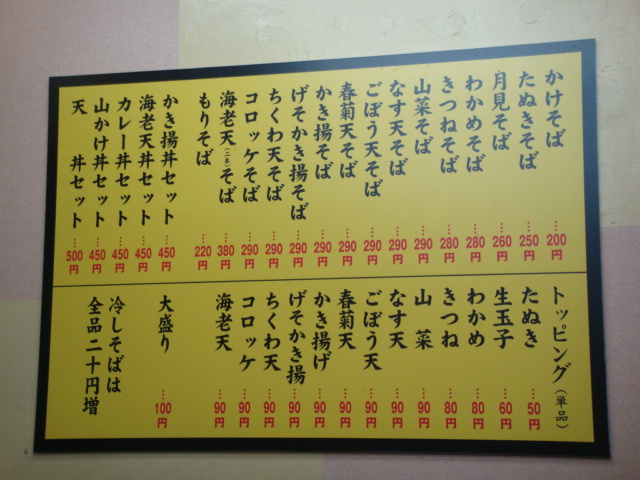 かけそば…200円
たぬきそば…250円
月見そば…260円
わかめそば…280円
きつねそば…280円
山菜そば…290円
なす天そば…290円
ごぼう天そば…290円
春菊天そば…290円
かき揚そば…290円
げそかき揚そば…290円
ちくわ天そば…290円
コロッケそば…290円
海老天(二本)そば…380円
もりそば…220円
かき揚丼セット…450円
海老天丼セット…450円
カレー丼セット…450円
山かけ丼セット…450円
天　丼セット…500円
トッピング(単品)
たぬき…50円
生玉子…60円
わかめ…80円
きつね…80円
山　菜…90円
なす天…90円
ごぼう天…90円
春菊天…90円
かき揚げ…90円
げそかき揚…90円
ちくわ天…90円
コロッケ…90円
海老天…90円
大盛り…100円
冷しそばは
全品二十円増